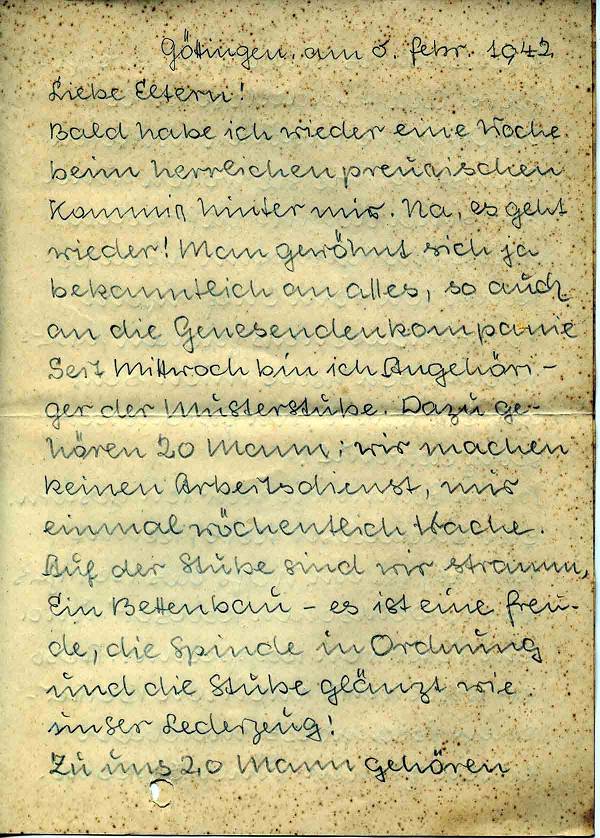 Göttingen, am 6. Febr. 1942
Liebe Eltern!
Bald habe ich wieder eine Woche
beim herrlichen preußischen
Kommiß hinter mir. Na, es geht
wieder! Man gewöhnt sich ja
bekanntlich an alles, so auch
an die Genesendenkompanie
Seit Mittwoch bin ich Angehöri-
ger der Musterstube. Dazu ge-
hören 20 Mann; wir machen
keinen Arbeitsdienst, nur
einmal wöchentlich Wache.
Auf der Stube sind wir stramm,
Ein Bettenbau - es ist eine Freu-
de, die Spinde in Ordnung
und die Stube glänzt wie
unser Lederzeug!
Zu uns 20 Mann gehören